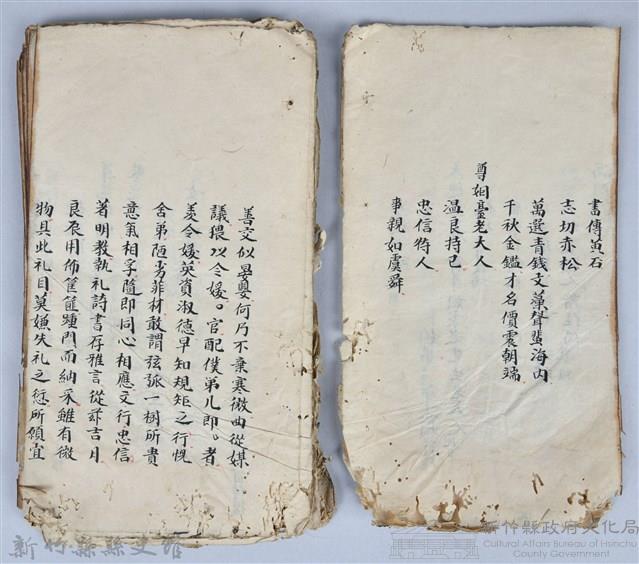 書傳黃石
志切赤松
萬選青錢文藻聲蜚海內
千秋金鑑才名價震朝端
尊姻臺老大人
溫良持己
忠信待人
事親如虞舜
善交似晏嬰何乃不棄寒微曲從媒
議猥以令媛。官配僕第几郎。者
羡令媛英資淑德早知規矩之行愧
舍弟陋劣菲材敢謂弦弧一樹所貴
意氣相孚隨即同心相應文行忠信
著明教執礼詩書存雅言從茲吉月
良辰用佈筐篚踵門而納采雖有微
物具此礼目莫嫌失礼之愆所願宜
新竹縣縣史館
新竹縣政府文化局
Cultural Affairs Bureau of Hsinchu
County Government